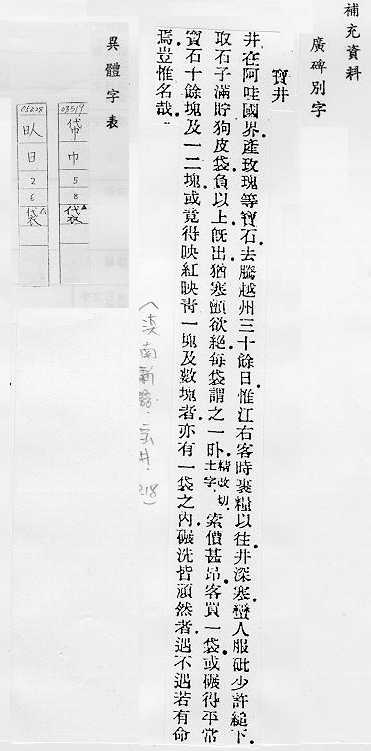 補充資料
廣碑別字
寶井
井在阿哇國界產玫瑰等寶石去騰越州三十餘日惟江右客時裹糧以往井深寒蠻人服砒少許縋下
取石子滿貯狗皮袋負以上旣出猶寒顫欲絕每袋謂之一㫈精改切土字索價甚昂客買一袋或碾得平常
寶石十餘塊及一二塊或竟得映紅映靑一塊及數塊者亦有一袋之內碾洗皆頑然者遇不遇若有命
焉豈惟名哉
(滇南新語·寶井·218)
異體字表
03519
巾
5
8
袋
日
2
6
袋